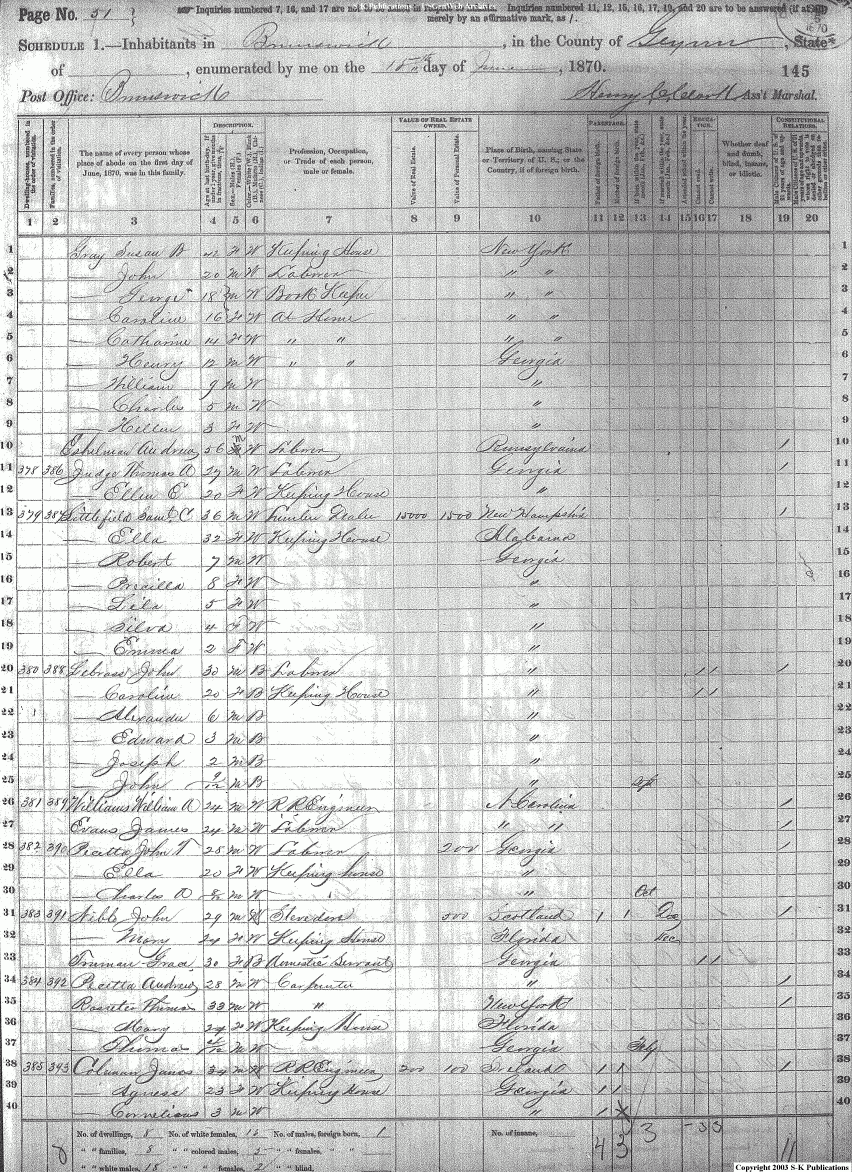 Page No. 51
Inquiries numbered 7, 16, and 17 are not to be asked in respect to infants. Inquiries numbered 11, 12, 15, 16, 17, 19, and 20 are to be answered (if at all)
merely by an affirmative mark, as /.
SCHEDULE 1.—Inhabitants in Brunswick, in the County of Glynn, State
of , enumerated by me on the 15th day of June, 1870. 145
Post Office: Brunswick Henry C. Clark Ass't Marshal.
DESCRIPTION. VALUE OF REAL ESTATE OWNED. PARENTAGE. EDUCATION. CONSTITUTIONAL RELATIONS.
Dwelling-houses, numbered in the order of visitation.
Families, numbered in the order of visitation.
The name of every person whose place of abode on the first day of June, 1870, was in this family.
Profession, Occupation, or Trade of each person, male or female.
Value of Real Estate.
Value of Personal Estate.
Place of Birth, naming State or Territory of U. S.; or the Country, if of foreign birth.
Father of foreign birth.
Mother of foreign birth.
Cannot read.
Cannot write.
Whether deaf and dumb, blind, insane, or idiotic.
1 2 3 4 5 6 7 8 9 10 11 12 13 14 15 16 17 18 19 20
1 Gray Susan F W Keeping House New York 1
2 — John 20 M W Laborer " " 2
3 — George 18 M W Book Keeper " " 3
4 — Caroline 16 F W At Home " " 4
5 — Catharine 14 F W " " " " 5
6 — Henry 12 M W " " Georgia 6
7 — William 9 M W " 7
8 — Charles 5 M W " 8
9 — Hellen 3 F W " 9
10 Eshelman Andrew 56 M W Laborer Pennsylvania 1 10
11 378 386 Judge Thomas A 27 M W Laborer Georgia 1 11
12 — Ellen E 20 F W Keeping House " 12
13 379 387 Littlefield Saml C 36 M W Lumber Dealer 15000 1500 New Hampshire 1 13
14 — Ella 32 F W Keeping House Alabama 14
15 — Robert 7 M W Georgia 15
16 — Precilla 8 F W " 16
17 — Lila 5 F W " 17
18 — Silva 4 F W " 18
19 — Emma 2 F W " 19
20 380 388 Lebrass John 30 M B Laborer " 1 1 1 20
21 — Caroline 20 F B Keeping House " 1 1 21
22 — Alexander 6 M B " 22
23 — Edward 3 M B " 23
24 — Joseph 2 M B " 24
25 — John 9/12 M B " Sept 25
26 381 389 Williams William A 24 M W R R Engineer N Carolina 1 26
27 Evans James 24 M W Laborer " " 1 27
28 382 390 Picetta John T 28 M W Laborer 200 Georgia 1 28
29 — Ella 20 F W Keeping house " 29
30 — Charles A 8/12 M W " Oct 30
31 383 391 Nible John 29 M W Stevedore 500 Scotland 1 1 Dec 1 31
32 — Mary 24 F W Keeping House Florida Dec 32
33 Truman Grace 30 F B Domestic Servant Georgia 1 1 33
34 384 392 Picetta Andrew 28 M W Carpenter " 1 34
35 Rosseter Thomas 33 M W " New York 1 35
36 — Mary 24 F W Keeping House Florida 36
37 — Thomas M W Georgia July 37
38 385 393 Colman James 34 M W R R Engineer 200 100 Ireland 1 1 1 38
39 — Agness 23 F W Keeping house Georgia 1 1 39
40 — Cornelious 3 M W " 1 40
No. of dwellings, 8 No. of white females, 16 No. of males, foreign born, 1 No. of insane,
" " families, 8 " " colored males, 5 " " females, "
" " white males, 18 " " females, 2 " " blind,
Copyright 2003 S-K Publications